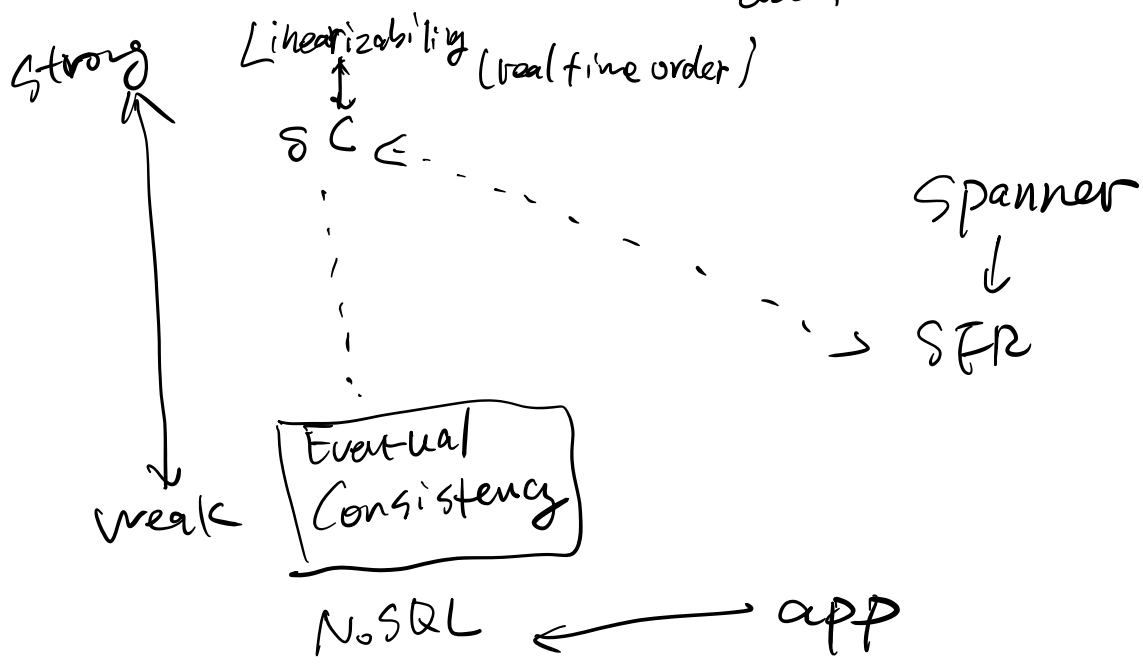 strong
Linearizability
(real time order)
SC
Spanner
SER
Eventual
Consistency
weak
NoSQL
app